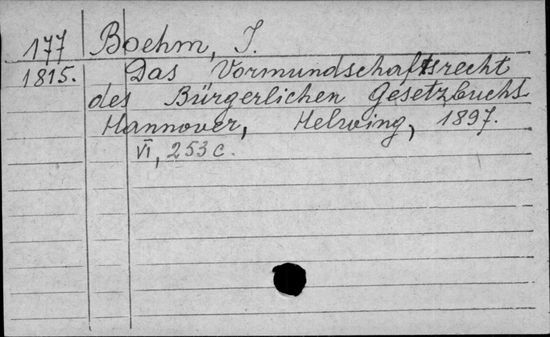 177 Boehm, J.
1815. Das Vormundschaftsrecht
des Bürgerlichen Gesetzbuchs.
Hannover, Helwing, 1897.
VI, 253 c.